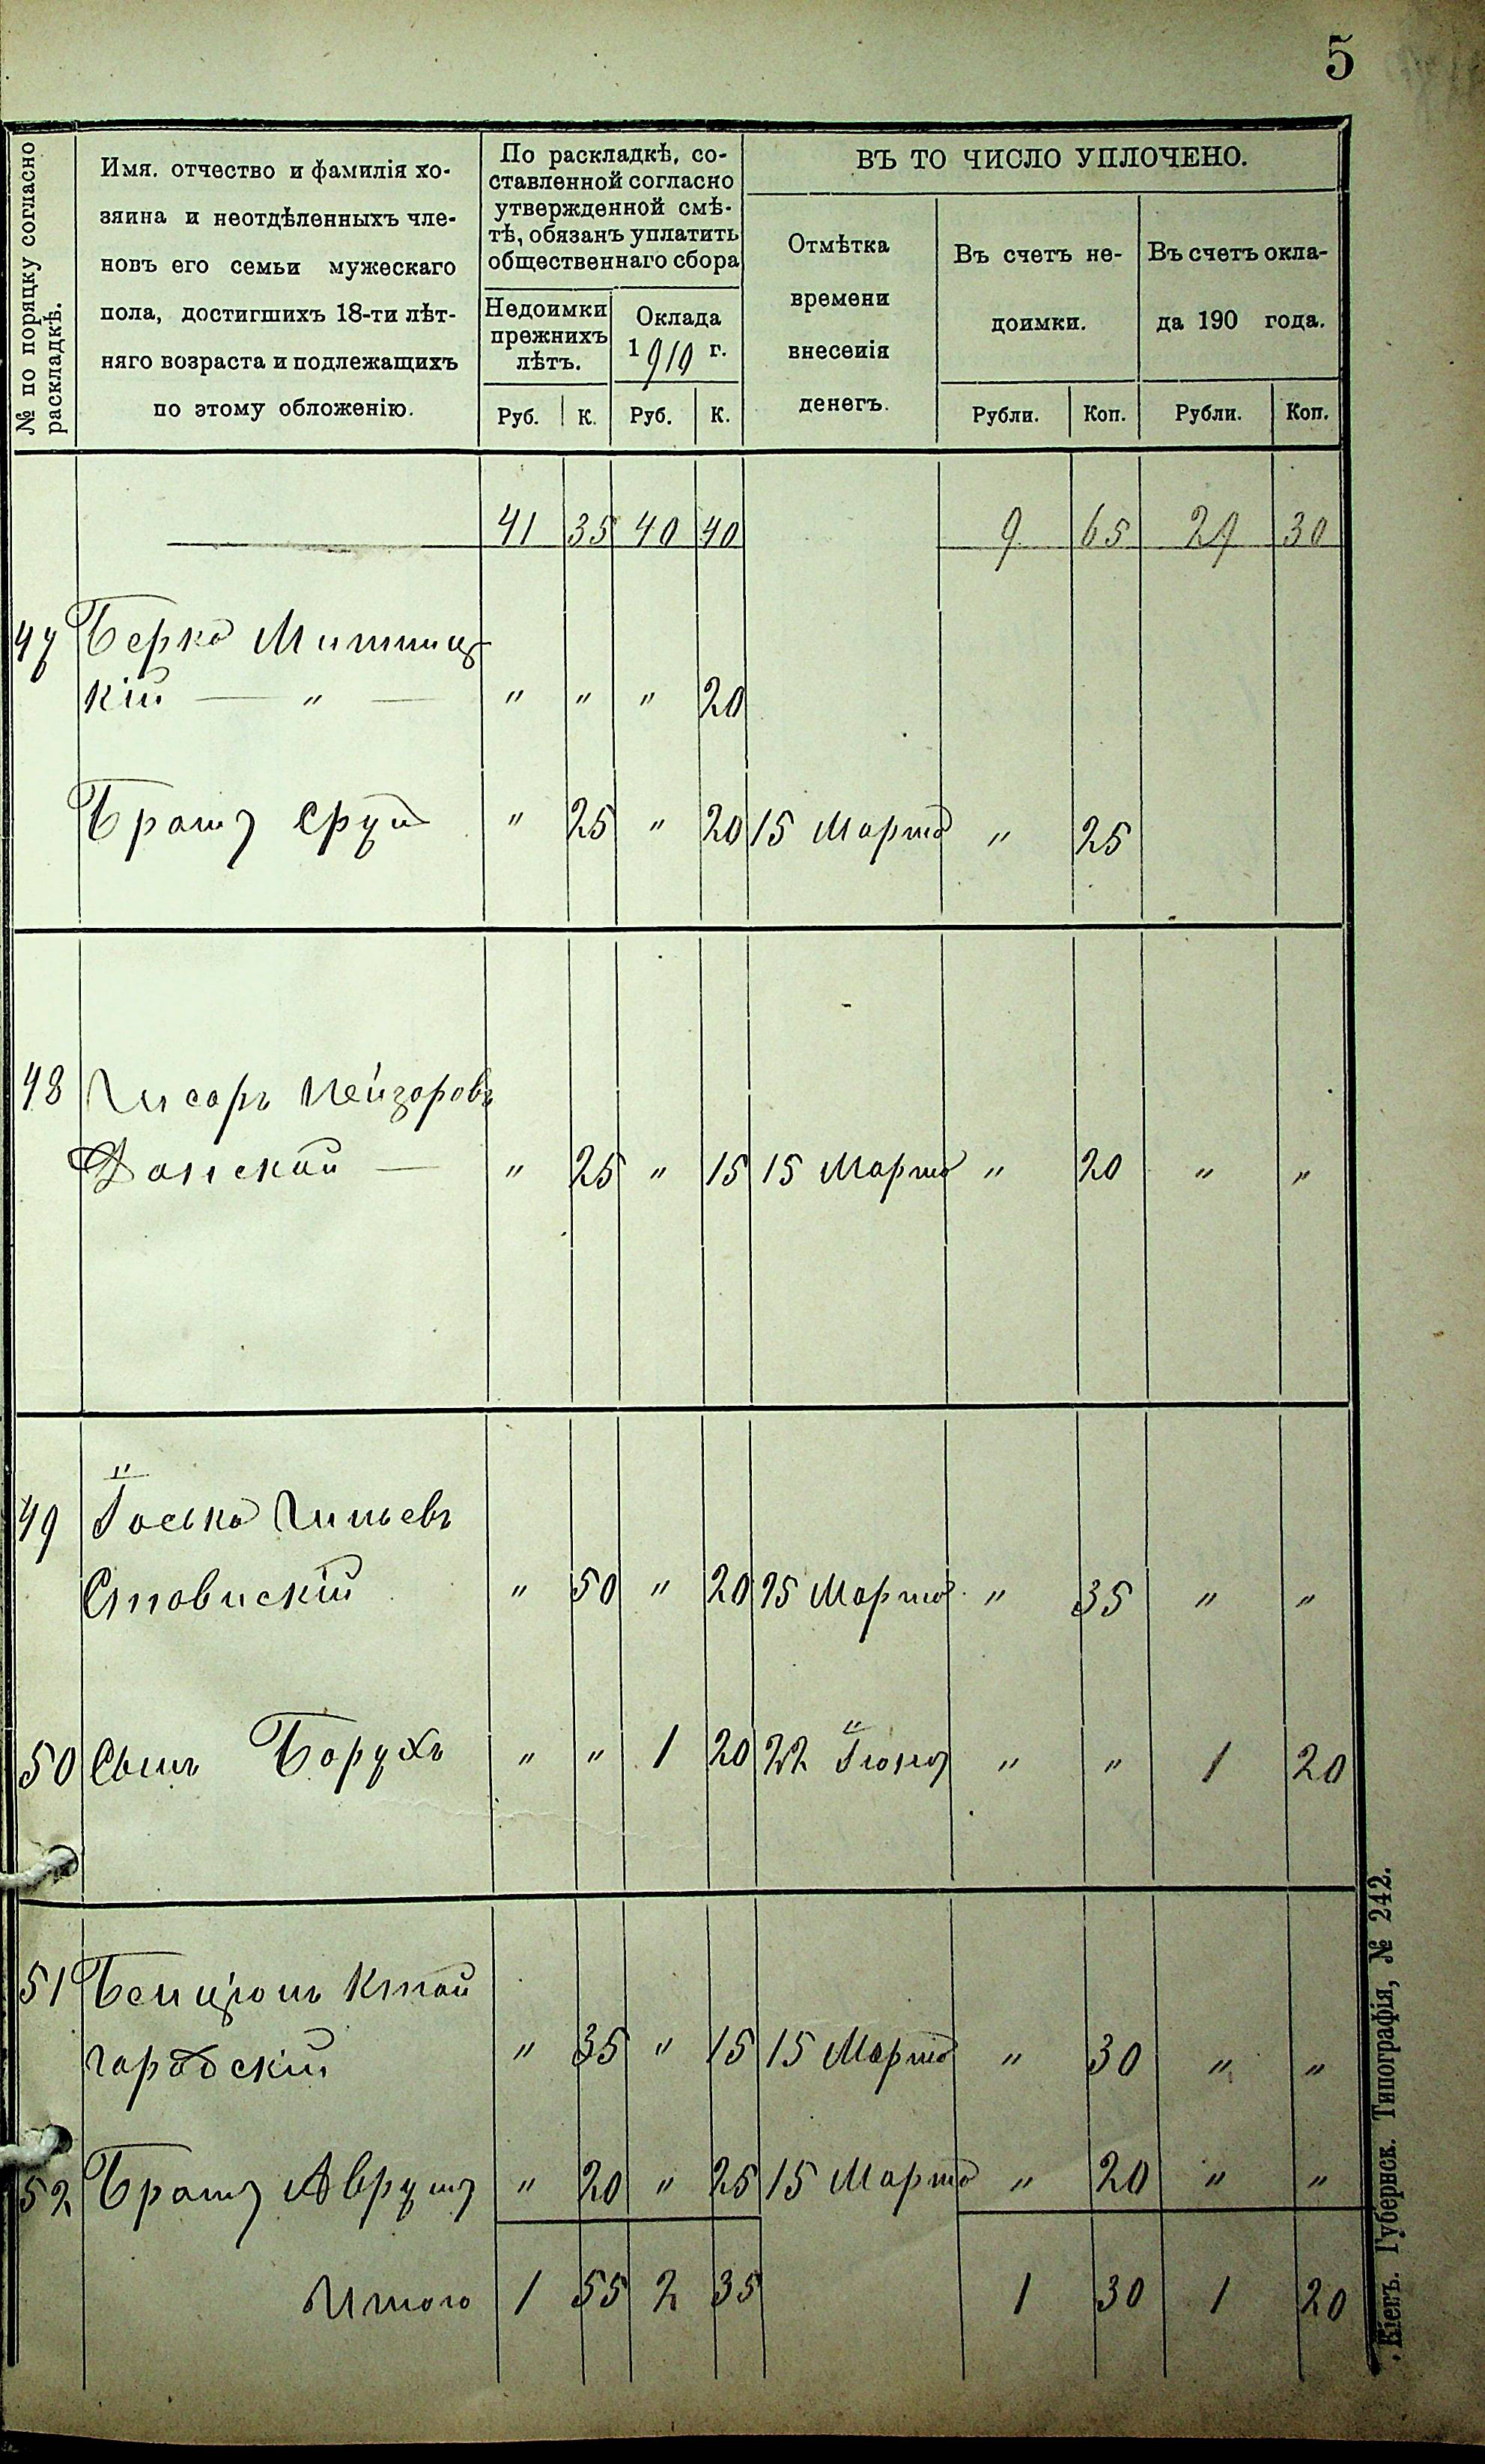 5
№ по поряцку согласно
раскладкѣ.
Имя. отчество и фамилія хо-
зяина и неотдѣленныхъ чле-
новъ его семьи мужескаго
пола, достигшихъ 18-ти лѣт-
няго возраста и подлежащихъ
по этому обложенію.
По раскладкѣ, со-
ставленной согласно
утвержденной смѣ-
тѣ, обязанъ уплатить
общественнаго сбора
Недоимки
прежнихъ
лѣтъ.
Оклада
1910 г.
Руб. К. Руб. К.
ВЪ ТО ЧИСЛО УПЛОЧЕНО.
Отмѣтка
времени
внесенія
денегъ.
Въ счетъ не-
доимки.
Рубли. Коп.
Въ счетъ окла-
да 190 года.
Рубли. Коп.
41 35 40 40 9 65 29 30
47 Берко Митниц
кій — " — " " " 20
Братъ Сруй " 25 " 20 15 Марта " 25
48 Исаръ Лейзоровъ
Данской — " 25 " 15 15 Марта " 20 " "
49 Іосько
Ставискій " 50 " 20 15 Марта " 35 " "
50 Сынъ Борухъ " " 1 20 22 Іюня " " 1 20
51 Бенціонъ
городскій " 35 " 15 15 Марта " 30 " "
52 Братъ Аврумъ " 20 " 25 15 Марта " 20 " "
Итого 1 55 2 35 1 30 1 20
Кіевъ. Губернск. Типографія, № 242.